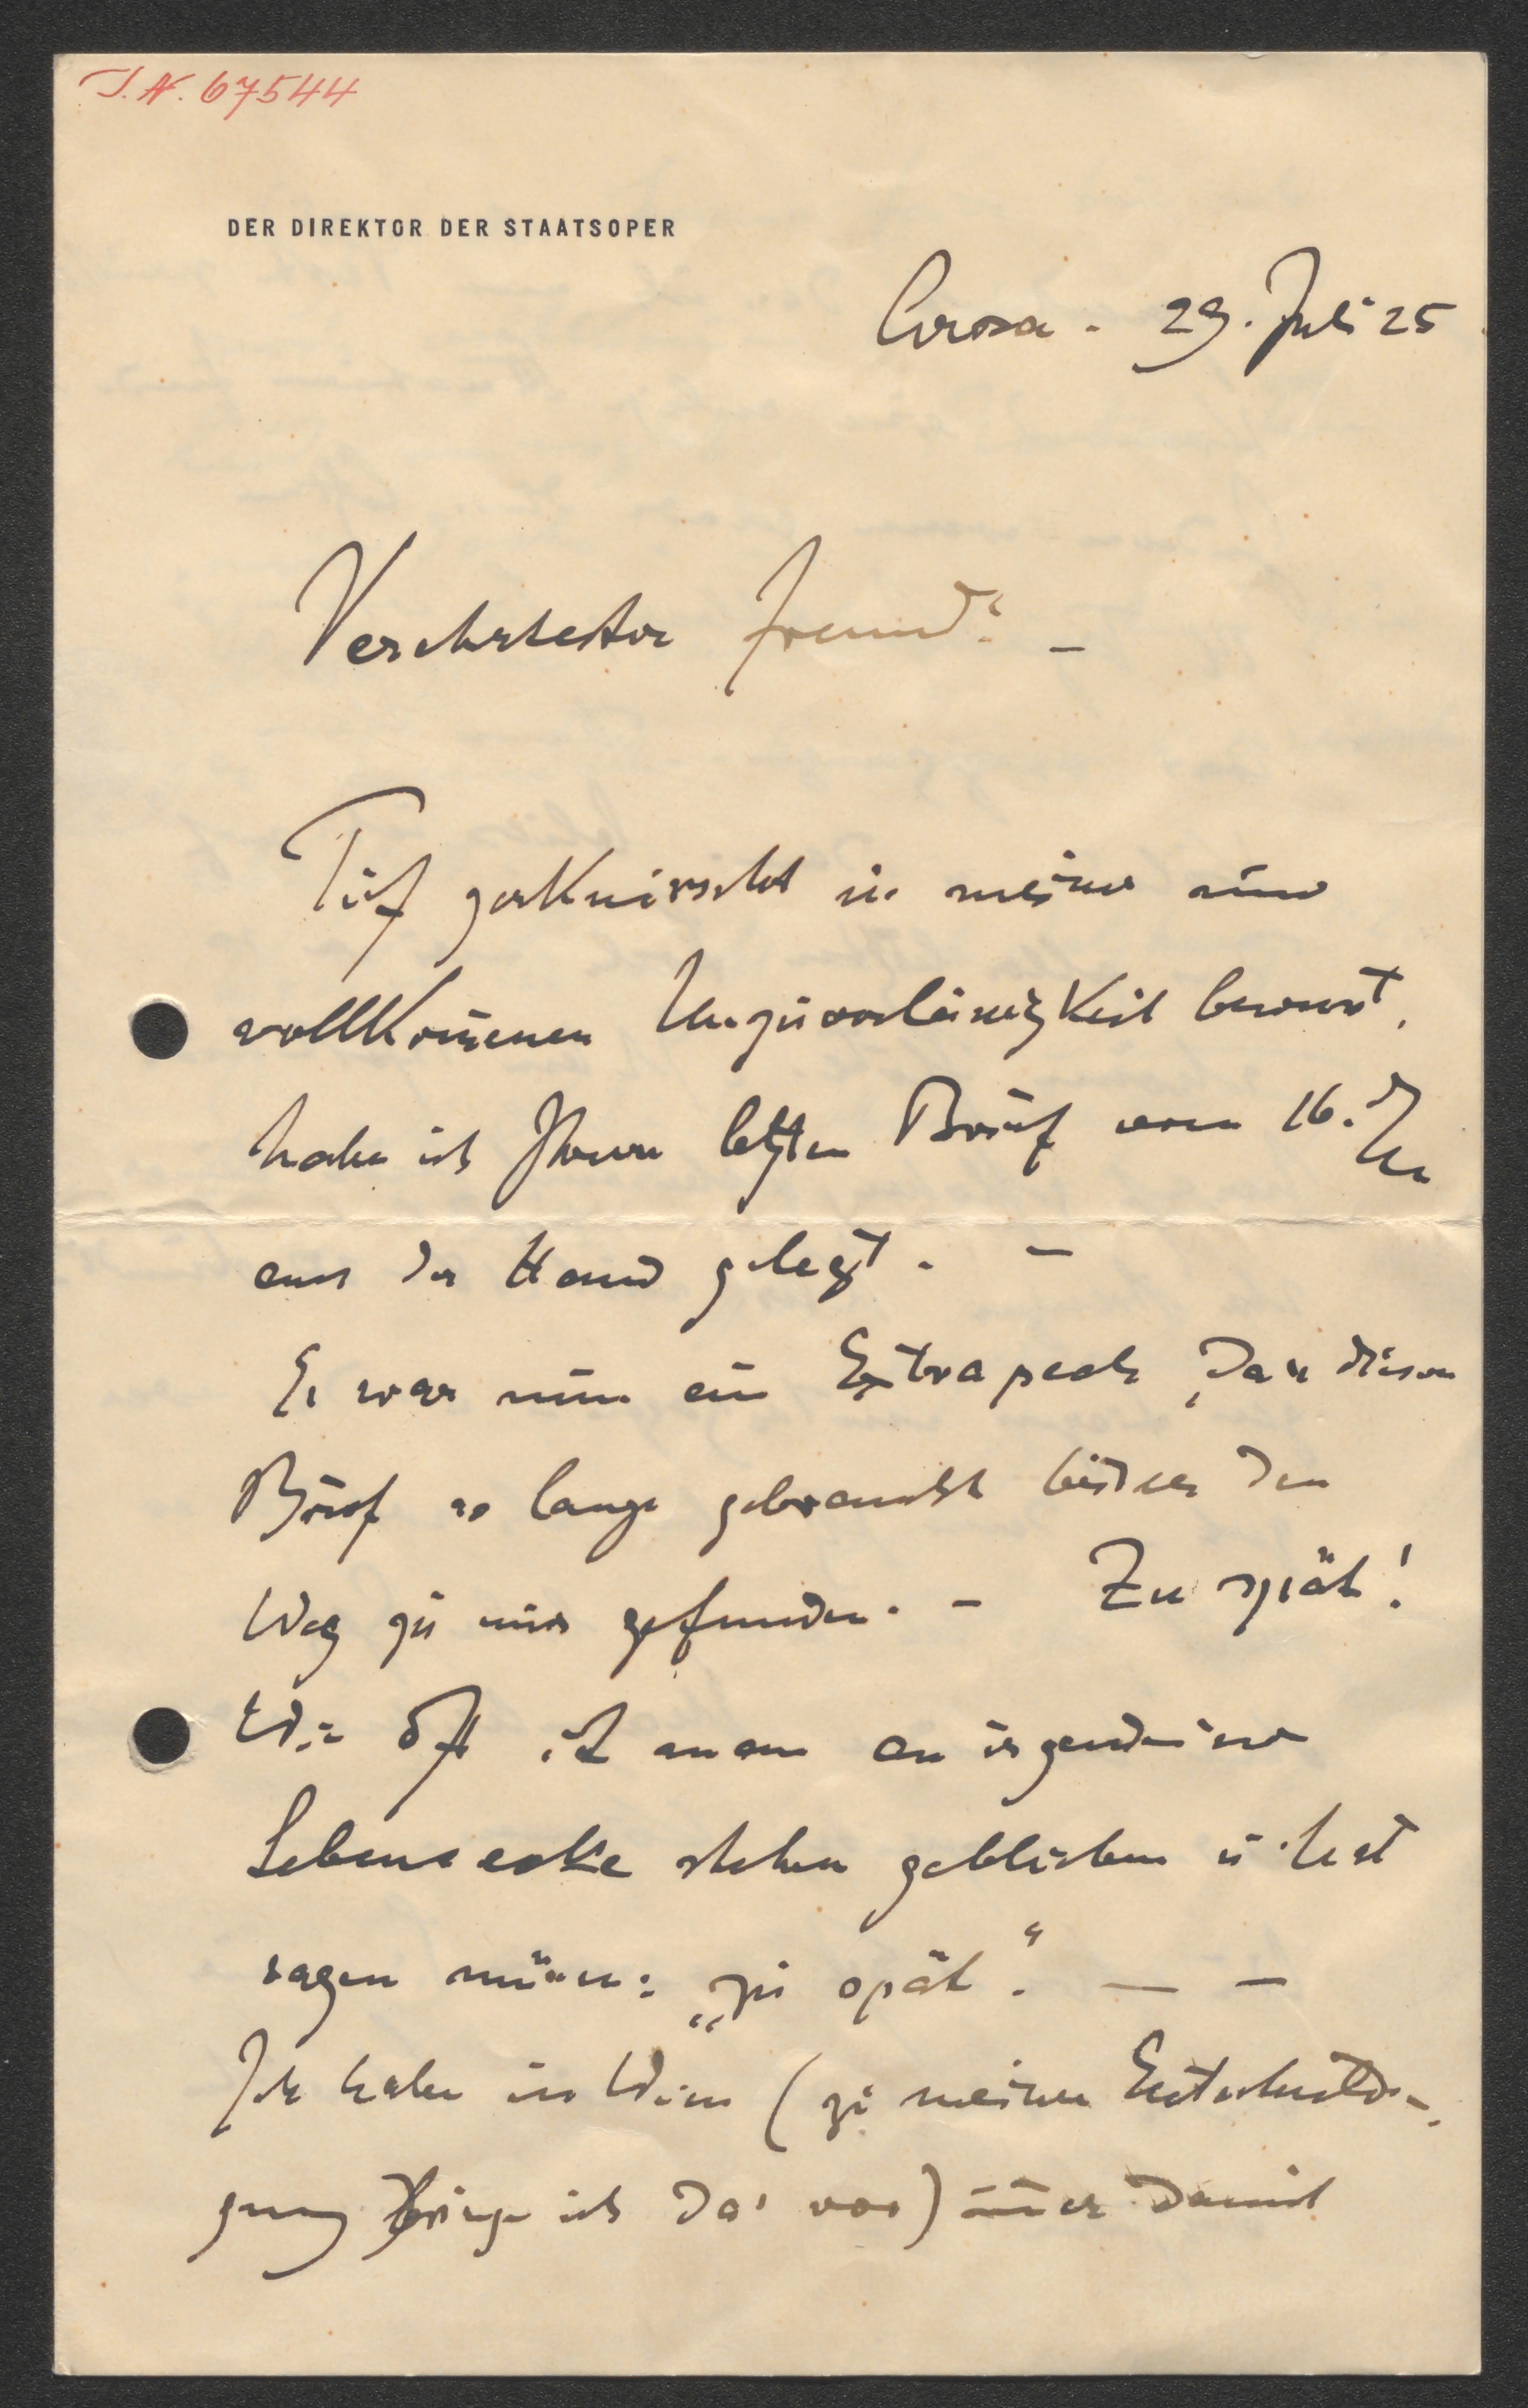 I.N. 67544
DER DIREKTOR DER STAATSOPER
Arosa - 29. Juli 25
Verehrtester Freund! -
Tief zerknirscht in meiner
vollkom̄enen Unzuverlässigkeit bewusst,
habe ich Ihren letzten Brief vom 16.
aus der Hand gelegt. -
Es war nun ein Extrapech, dass dieser
Brief so lange gebraucht bis er den
Weg zu mir gefunden. - Zu spät!
Wie oft ist man an irgendeiner
Lebensecke stehen geblieben u. hat
sagen müssen: „zu spät". - -
Ich habe in Wien (zu meiner Entschuldi-
gung bringe ich das vor) im̄er damit